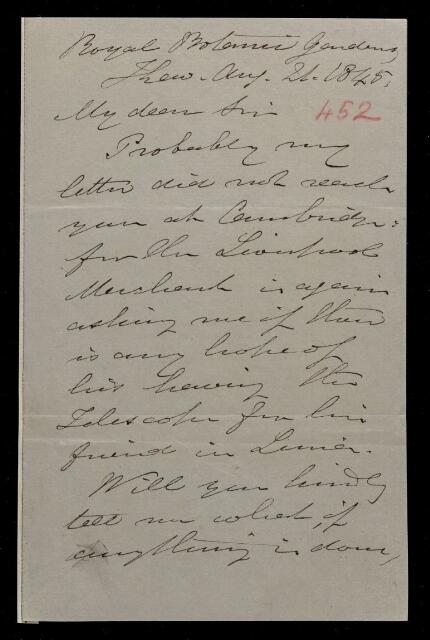 Royal Botanic Gardens,
Kew. Aug. 21. 1845.
My dear Sir
452
Probably my
letter did not reach
you at Cambridge:
for the Liverpool
Merchant is again
asking me if there
is any hope of
his having the
Telescope for his
friend in
Will you kindly
tell me what, if
anything is done,